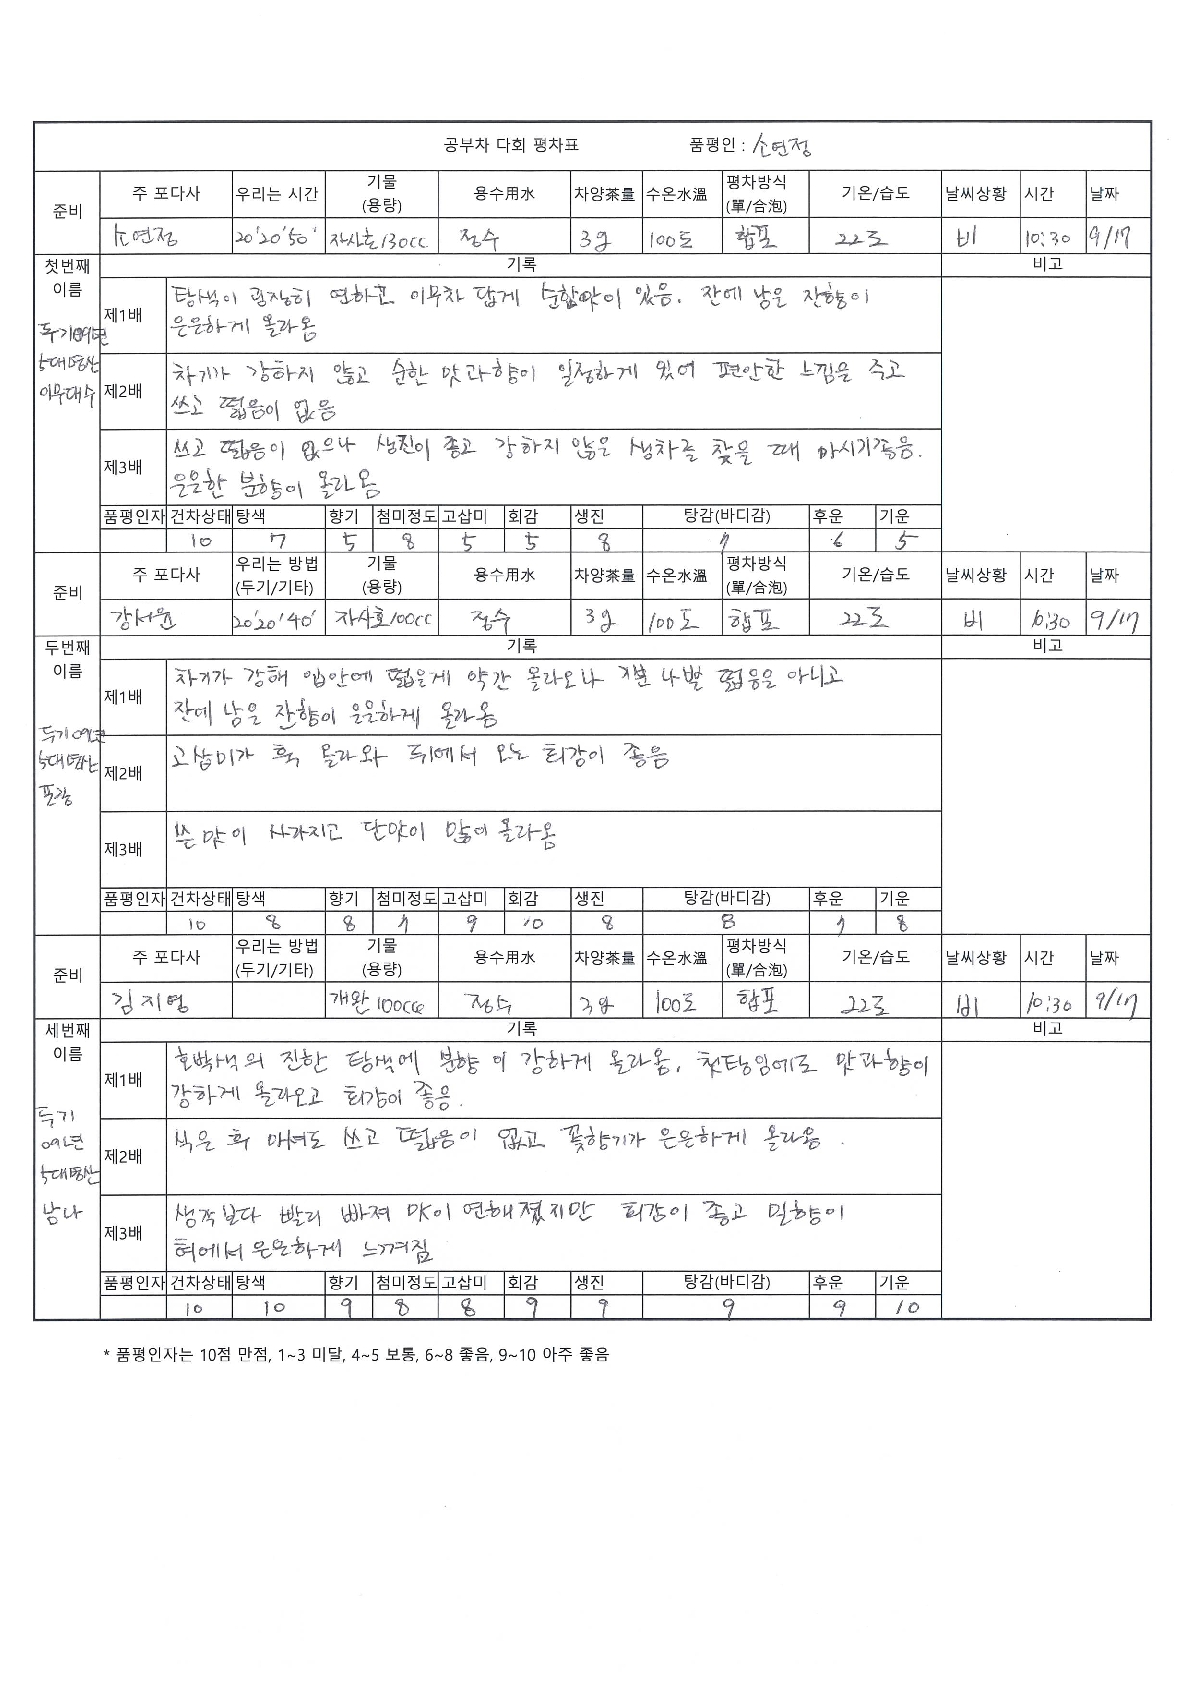 공부차 다회 평차표 품평인 : 소연정
준비 주 포다사 우리는 시간 기물 (용량) 용수用水 차양茶量 수온水溫 평차방식 (單/合泡) 기온/습도 날씨상황 시간 날짜
소연정 20'20'50' 자사호130cc 정수 3g 100도 합포 22도 비 10:30 9/17
첫번째 이름 기록 비고
두기09년
5대명산
이무대수
제1배 탕색이 굉장히 연하고 이무차 답게 순한맛이 있음. 잔에 남은 잔향이
은은하게 올라옴
제2배 차기가 강하지 않고 순한 맛과향이 일정하게 있어 편안한 느낌을 주고
쓰고 떫음이 없음
제3배 쓰고 떫음이 없으나 생진이 좋고 강하지 않은 생차를 찾을 때 마시기좋음.
은은한 분향이 올라옴
품평인자 건차상태 탕색 향기 첨미정도 고삽미 회감 생진 탕감(바디감) 후운 기운
10 7 5 8 5 5 8 7 6 5
준비 주 포다사 우리는 방법 (두기/기타) 기물 (용량) 용수用水 차양茶量 수온水溫 평차방식 (單/合泡) 기온/습도 날씨상황 시간 날짜
강서윤 20'20'40' 자사호100cc 정수 3g 100도 합포 22도 비 10:30 9/17
두번째 이름 기록 비고
두기09년
5대명산
포랑
제1배 차기가 강해 입안에 떫은게 약간 올라오나 기분 나쁠 떫음은 아니고
잔에 남은 잔향이 은은하게 올라옴
제2배 고삽미가 훅 올라와 뒤에서 오는 회감이 좋음
제3배 쓴맛이 사라지고 단맛이 많이 올라옴
품평인자 건차상태 탕색 향기 첨미정도 고삽미 회감 생진 탕감(바디감) 후운 기운
10 8 8 7 9 10 8 8 7 8
준비 주 포다사 우리는 방법 (두기/기타) 기물 (용량) 용수用水 차양茶量 수온水溫 평차방식 (單/合泡) 기온/습도 날씨상황 시간 날짜
김지영 개완100cc 정수 3g 100도 합포 22도 비 10:30 9/17
세번째 이름 기록 비고
두기
09년
5대명산
남나
제1배 호박색의 진한 탕색에 분향이 강하게 올라옴. 첫탕임에도 맛과향이
강하게 올라오고 회감이 좋음.
제2배 식은 후 마셔도 쓰고 떫음이 없고 꽃향기가 은은하게 올라옴.
제3배 생각보다 빨리 빠져 맛이 연해졌지만 회감이 좋고 밀향이
혀에서 은은하게 느껴짐
품평인자 건차상태 탕색 향기 첨미정도 고삽미 회감 생진 탕감(바디감) 후운 기운
10 10 9 8 8 9 9 9 9 10
* 품평인자는 10점 만점, 1~3 미달, 4~5 보통, 6~8 좋음, 9~10 아주 좋음